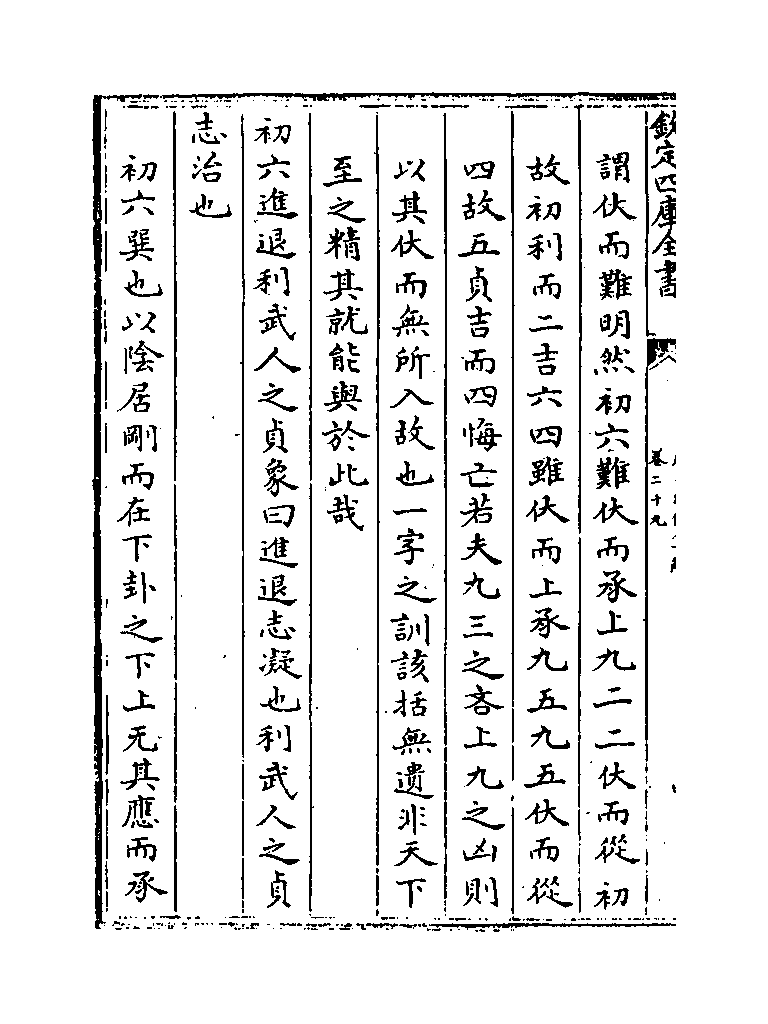 欽定四庫全書
卷二十九
謂伏而難明然初六難伏而承上九二二伏而從初
故初利而二吉六四雖伏而上承九五九五伏而從
四故五貞吉而四悔亡若夫九三之吝上九之凶則
以其伏而無所入故也一字之訓該括無遺非天下
至之精其就能與於此哉
初六進退利武人之貞象曰進退志凝也利武人之貞
志治也
初六巽也以陰居剛而在下卦之下上无其應而承